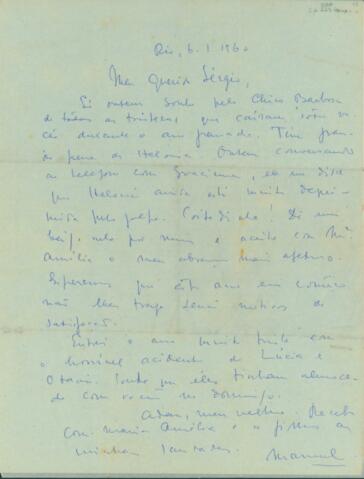 Rio, 6.1.1960
Meu Querido Sérgio,
Só ontem soube pelo Chico Barbosa
de todas as tristezas que caíram sobre vo-
cês durante o ano passado. Tive gran-
de pena da Heloisa. Ontem conversando
ao telefone com Graciema, ela me disse
que Heloisa ainda está muito depri-
mida pelo golpe. Coitadinha! Dê um
beijo nela por mim e aceite com Ma
Amélia o meu abraço mais afetuoso.
Esperemos que este ano em começo
não lhes traga senão motivos de
satisfação.
Entrei o ano muito triste com
o horrível acidente de Lúcia e
Otavio. Soube que eles tinham almoça-
do com você no domingo.
Adeus, meu velho. Receba
com Maria Amélia e os filhos as
minhas saudades.
Manuel